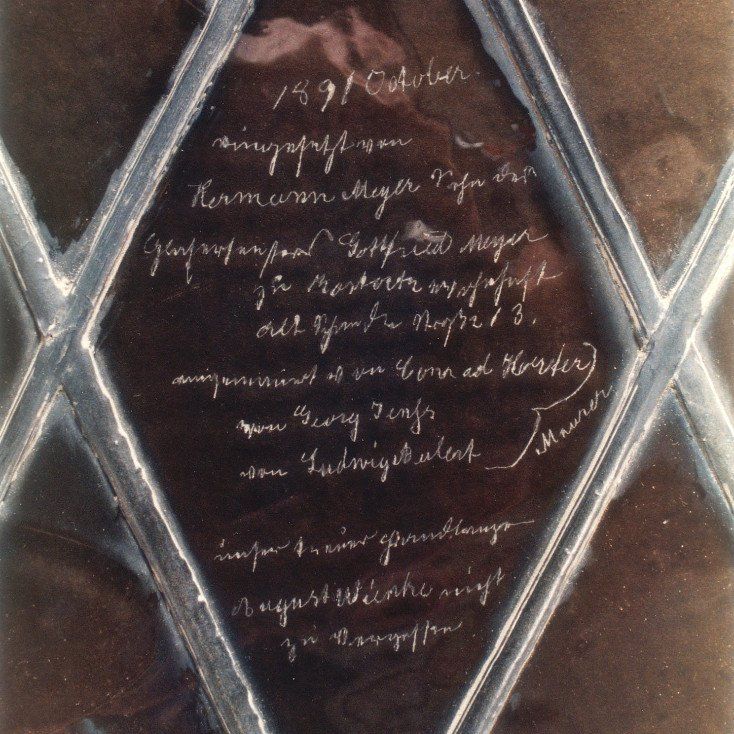 1891 October.
eingesetzt von
Hermann Meyer Sohn des
Glasermeisters Gottfried Meyer
zu wohnhaft
Alt Straße 13.
eingemauert von Conrad Harter
von Georg
von Ludwig
Maurer
unser treuer Handlanger
August nicht
zu Vergessen